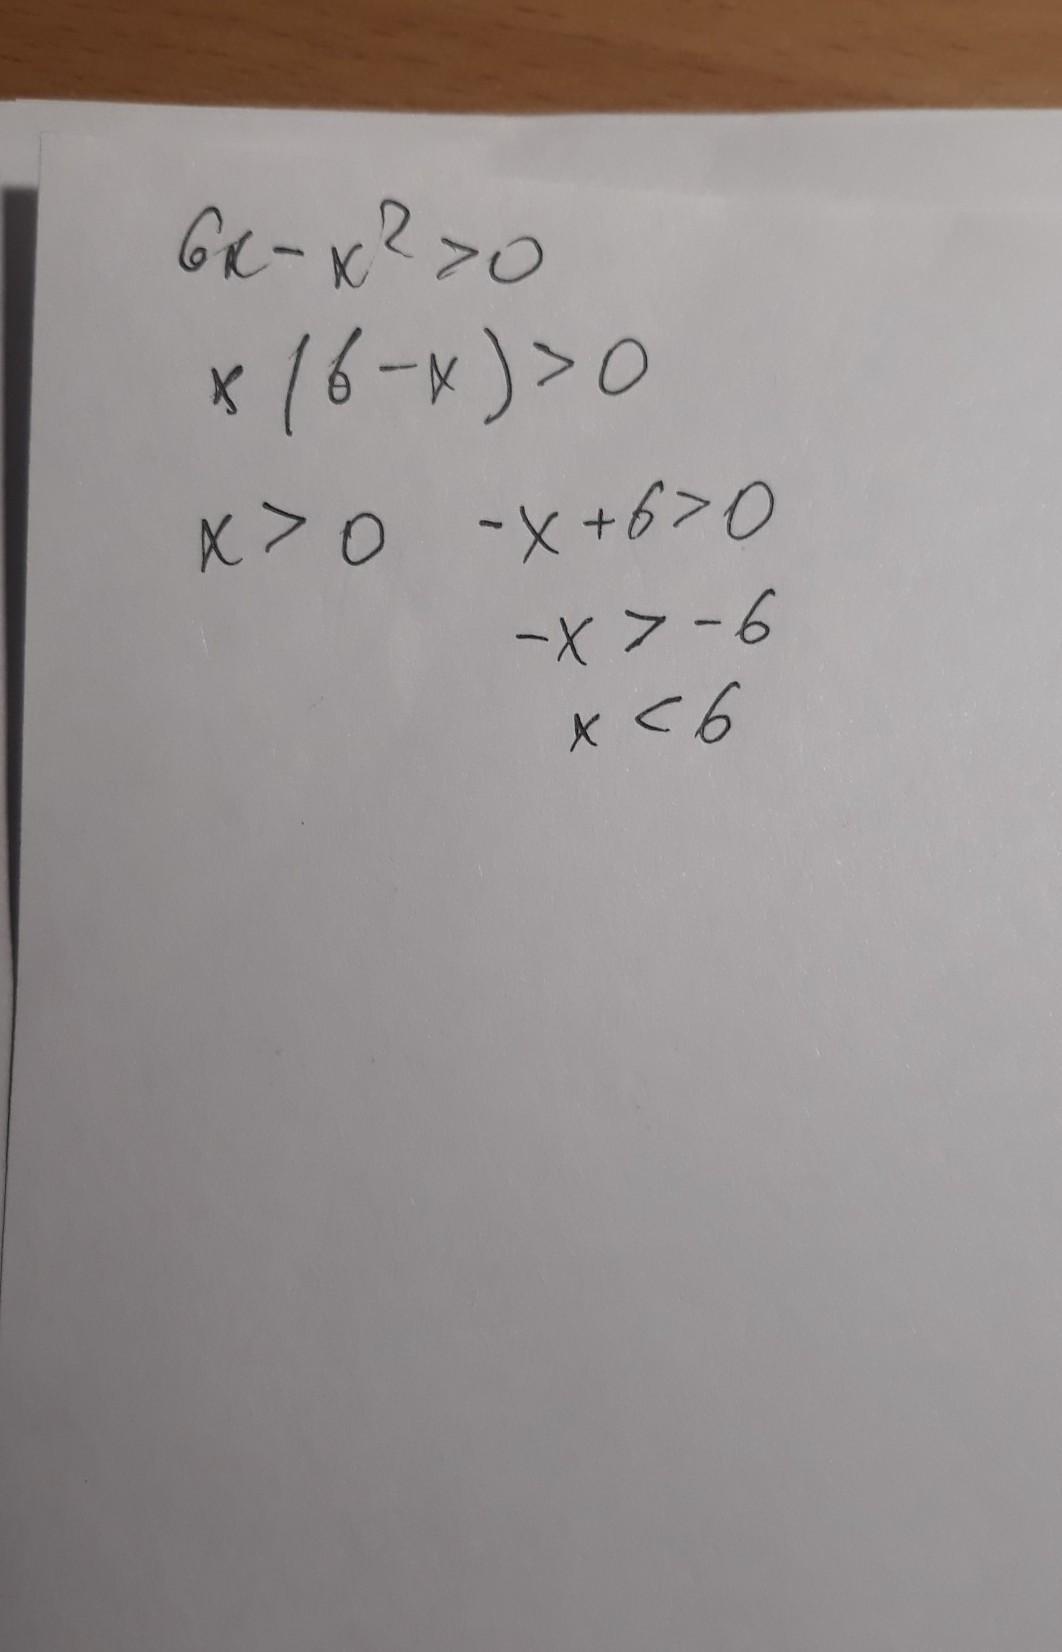 6x - x² > 0
x (6 - x) > 0
x > 0 -x + 6 > 0
-x > -6
x < 6